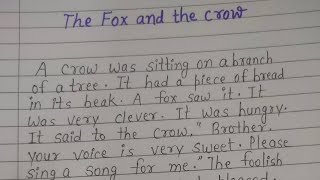 The Fox and the crow
A crow was sitting on a branch
of a tree. It had a piece of bread
in its beak. A fox saw it. It
was very clever. It was hungry.
It said to the crow," Brother,
your voice is very sweet. Please
sing a song for me." The foolish